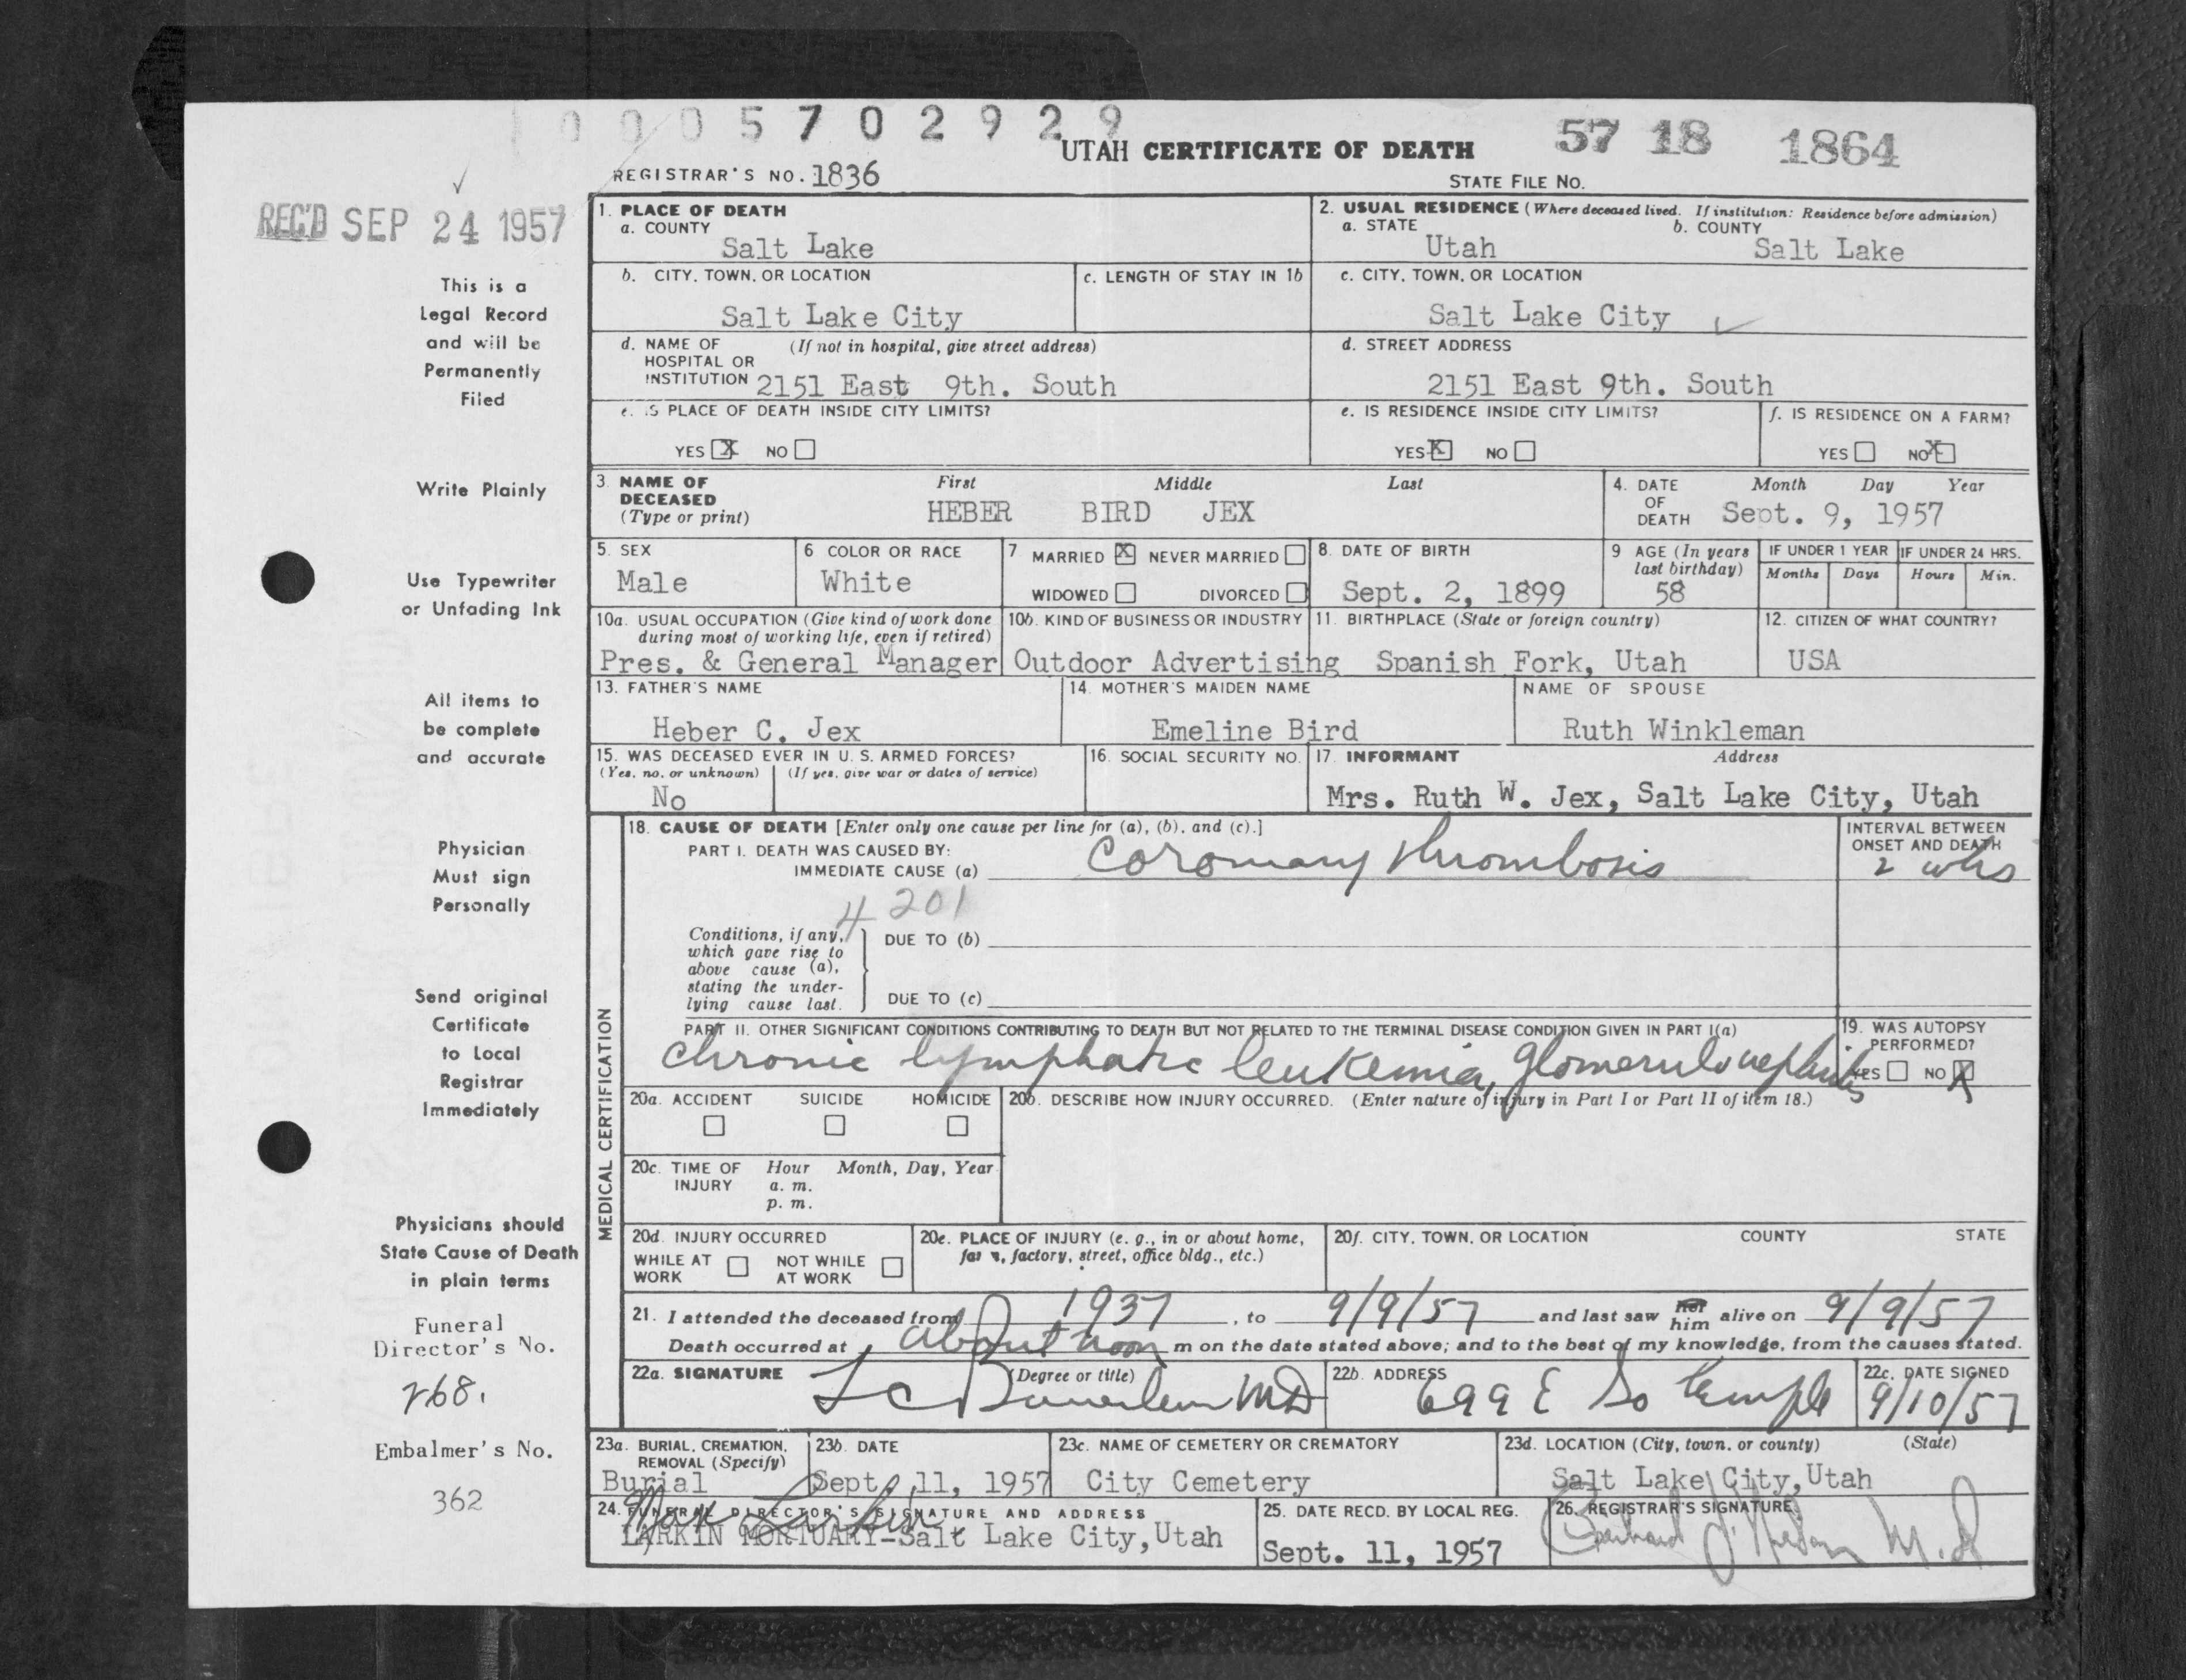 10005702929
UTAH CERTIFICATE OF DEATH
57 18 1864
REGISTRAR'S NO. 1836
STATE FILE NO.
REC'D SEP 24 1957
This is a
Legal Record
and will be
Permanently
Filed
Write Plainly
Use Typewriter
or Unfading Ink
All items to
be complete
and accurate
Physician
Must sign
Personally
Send original
Certificate
to Local
Registrar
Immediately
Physicians should
State Cause of Death
in plain terms
Funeral
Director's No.
268.
Embalmer's No.
362
1. PLACE OF DEATH
a. COUNTY
Salt Lake
2. USUAL RESIDENCE (Where deceased lived. If institution: Residence before admission)
a. STATE b. COUNTY
Utah Salt Lake
b. CITY, TOWN, OR LOCATION
Salt Lake City
c. LENGTH OF STAY IN 1b
c. CITY, TOWN, OR LOCATION
Salt Lake City
d. NAME OF (If not in hospital, give street address)
HOSPITAL OR
INSTITUTION 2151 East 9th. South
d. STREET ADDRESS
2151 East 9th. South
e. IS PLACE OF DEATH INSIDE CITY LIMITS?
YES X NO
e. IS RESIDENCE INSIDE CITY LIMITS?
YES X NO
f. IS RESIDENCE ON A FARM?
YES NO X
3. NAME OF First Middle Last
DECEASED
(Type or print) HEBER BIRD JEX
4. DATE Month Day Year
OF
DEATH Sept. 9, 1957
5. SEX
Male
6 COLOR OR RACE
White
7. MARRIED X NEVER MARRIED
WIDOWED DIVORCED
8. DATE OF BIRTH
Sept. 2, 1899
9 AGE (In years
last birthday)
58
IF UNDER 1 YEAR IF UNDER 24 HRS.
Months Days Hours Min.
10a. USUAL OCCUPATION (Give kind of work done
during most of working life, even if retired)
Pres. & General Manager
10b. KIND OF BUSINESS OR INDUSTRY
Outdoor Advertising
11. BIRTHPLACE (State or foreign country)
Spanish Fork, Utah
12. CITIZEN OF WHAT COUNTRY?
USA
13. FATHER'S NAME
Heber C. Jex
14. MOTHER'S MAIDEN NAME
Emeline Bird
NAME OF SPOUSE
Ruth Winkleman
15. WAS DECEASED EVER IN U. S. ARMED FORCES?
(Yes, no, or unknown) (If yes, give war or dates of service)
No
16. SOCIAL SECURITY NO.
17. INFORMANT Address
Mrs. Ruth W. Jex, Salt Lake City, Utah
MEDICAL CERTIFICATION
18. CAUSE OF DEATH [Enter only one cause per line for (a), (b), and (c).]
PART I. DEATH WAS CAUSED BY:
IMMEDIATE CAUSE (a) Coronary thrombosis
INTERVAL BETWEEN
ONSET AND DEATH
2 wks
4 201
Conditions, if any,
which gave rise to
above cause (a),
stating the under-
lying cause last.
DUE TO (b)
DUE TO (c)
PART II. OTHER SIGNIFICANT CONDITIONS CONTRIBUTING TO DEATH BUT NOT RELATED TO THE TERMINAL DISEASE CONDITION GIVEN IN PART I(a)
Chronic lymphatic leukemia, glomerulonephritis
19. WAS AUTOPSY
PERFORMED?
YES NO X
20a. ACCIDENT SUICIDE HOMICIDE
20b. DESCRIBE HOW INJURY OCCURRED. (Enter nature of injury in Part I or Part II of item 18.)
20c. TIME OF Hour Month, Day, Year
INJURY a. m.
p. m.
20d. INJURY OCCURRED
WHILE AT NOT WHILE
WORK AT WORK
20e. PLACE OF INJURY (e. g., in or about home,
farm, factory, street, office bldg., etc.)
20f. CITY, TOWN, OR LOCATION COUNTY STATE
21. I attended the deceased from 1937, to 9/9/57 and last saw her him alive on 9/9/57
Death occurred at about noon m on the date stated above; and to the best of my knowledge, from the causes stated.
22a. SIGNATURE (Degree or title)
MD
22b. ADDRESS
699 E So Temple
22c. DATE SIGNED
9/10/57
23a. BURIAL, CREMATION,
REMOVAL (Specify)
Burial
23b. DATE
Sept. 11, 1957
23c. NAME OF CEMETERY OR CREMATORY
City Cemetery
23d. LOCATION (City, town, or county) (State)
Salt Lake City, Utah
24. FUNERAL DIRECTOR'S SIGNATURE AND ADDRESS
Max Larkin
LARKIN MORTUARY-Salt Lake City, Utah
25. DATE RECD. BY LOCAL REG.
Sept. 11, 1957
26. REGISTRAR'S SIGNATURE
M.D